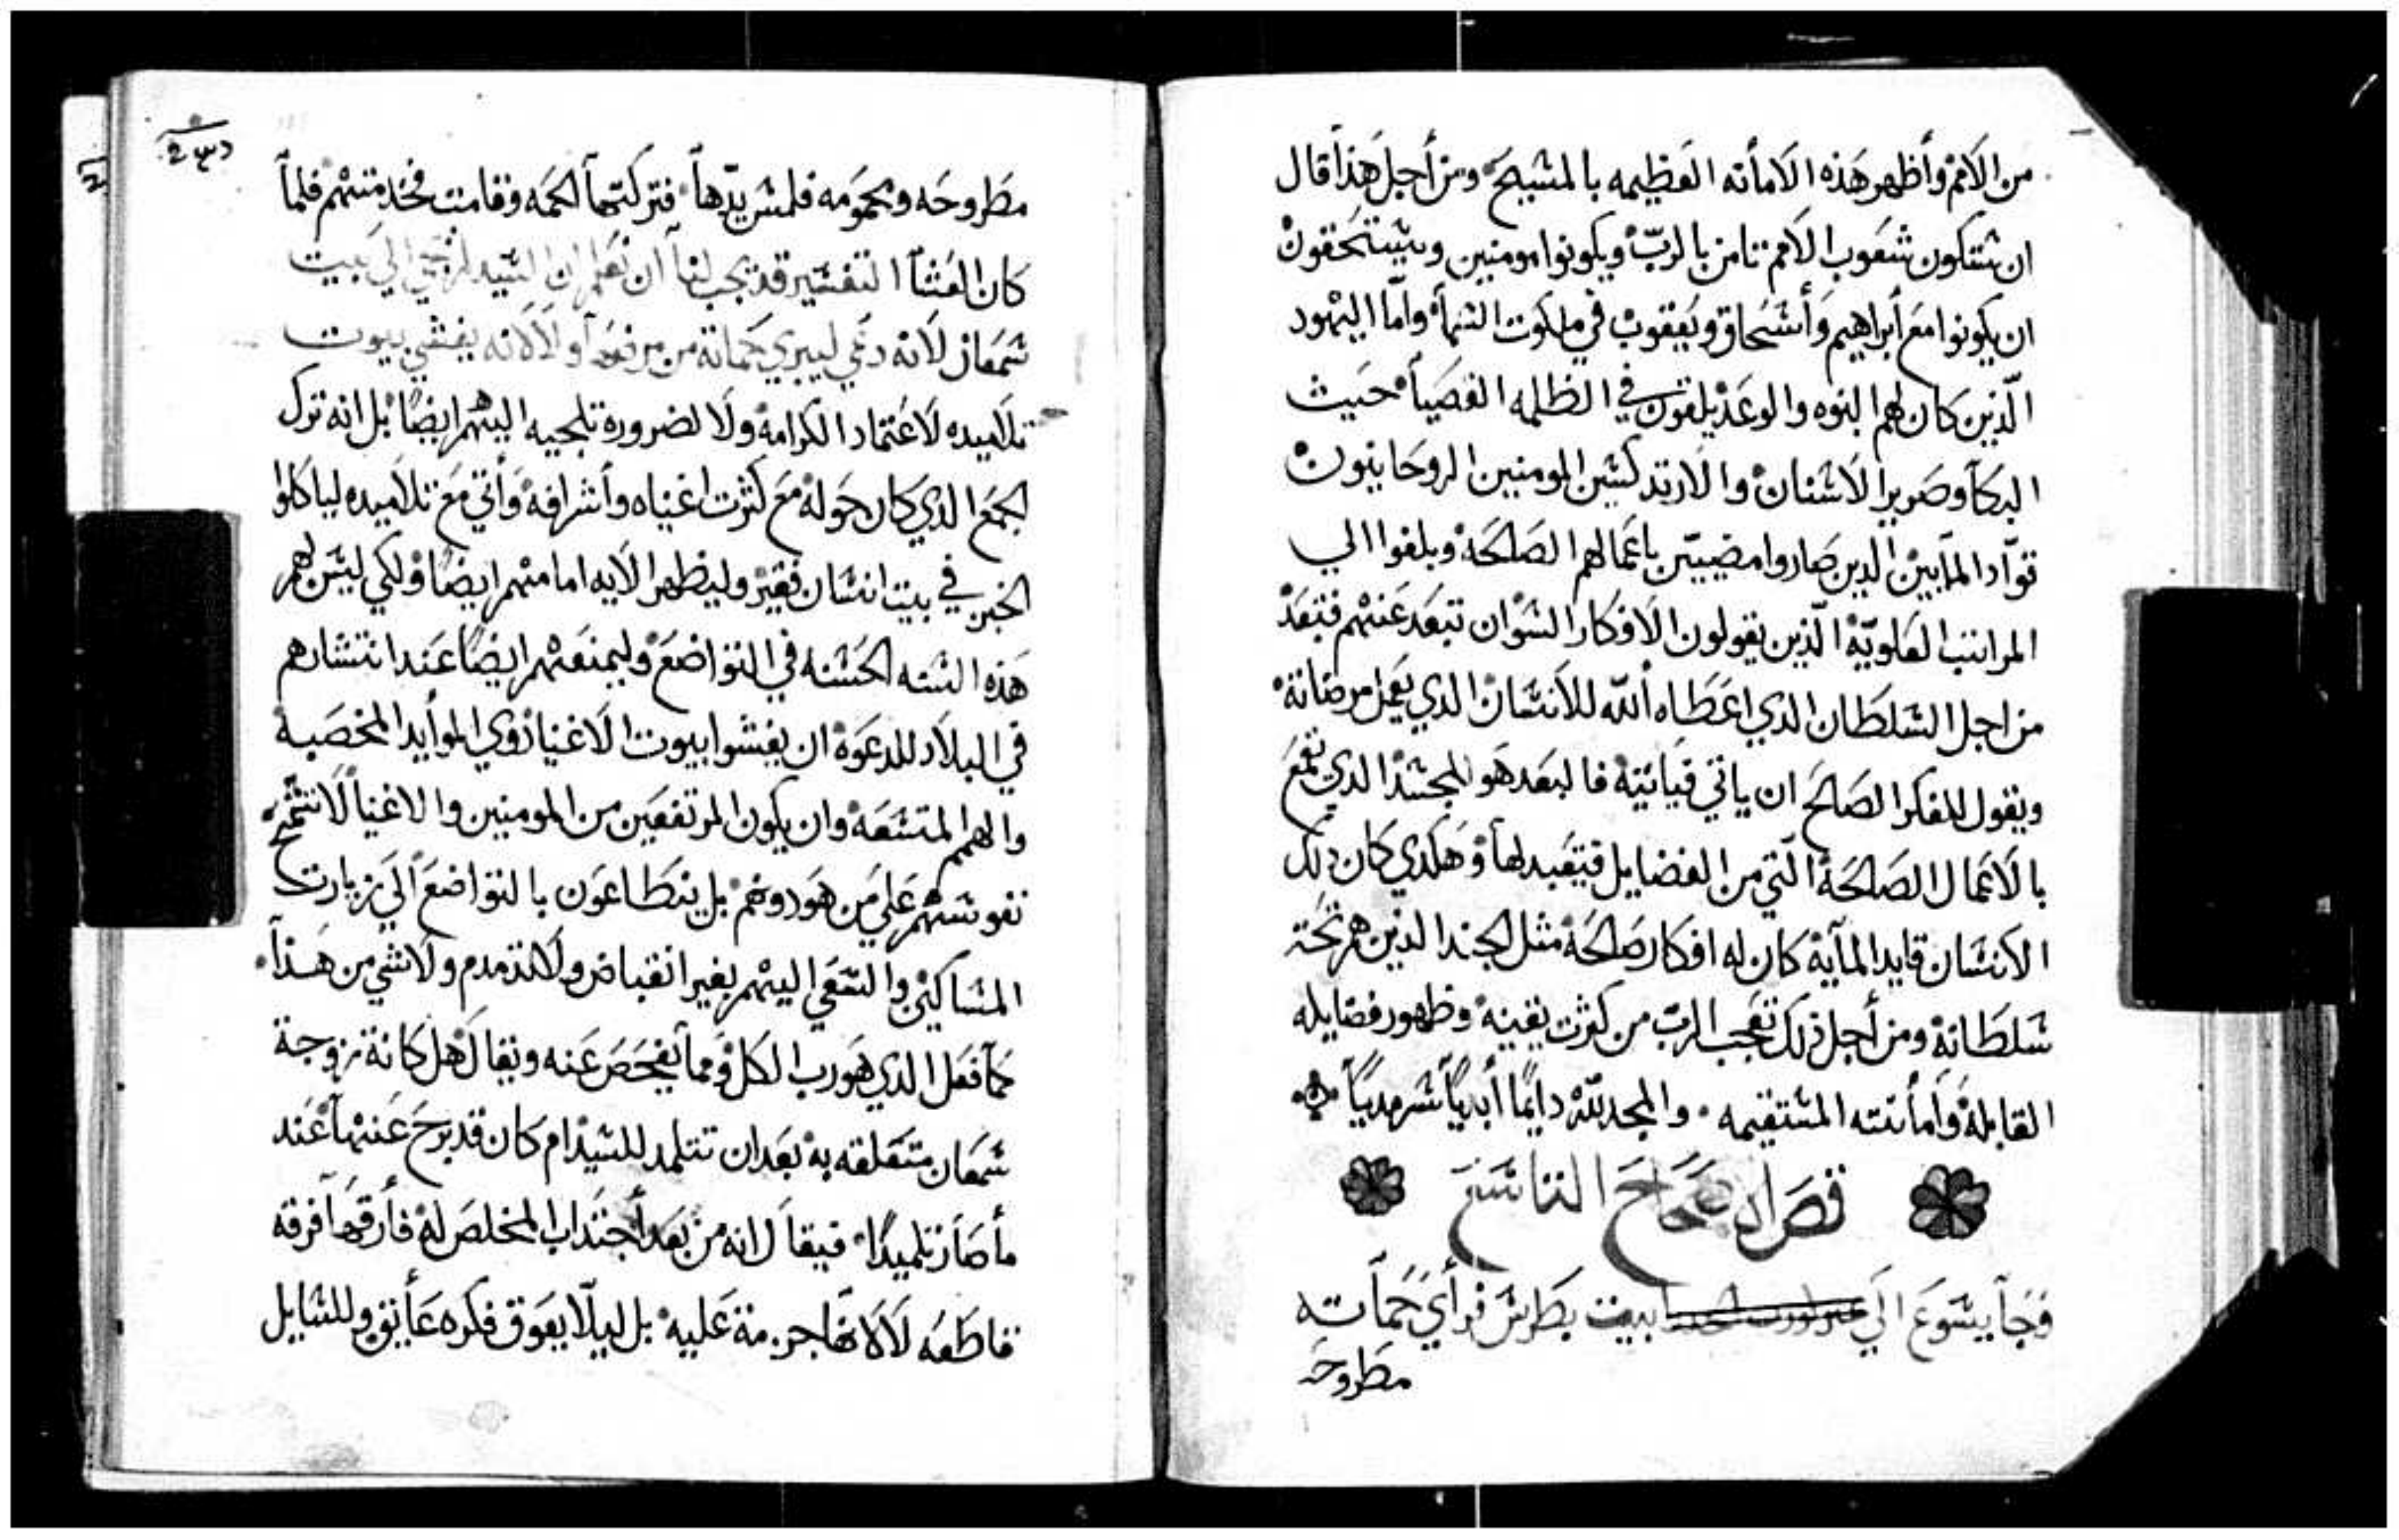 من الامم وأظهر هَذه الامأنه العَظيمه بالمشيحَ ومن أجل هَذا قال
ان شتكون شعَوب الامم تامن بالربّ ويكونوا مومنين ويشتحَقون
ان يكونوا معَ أبراهيم وَأشحَاق ويَعقوب في ملكوت الشمأ وامّا اليهود
الّذين كَان لهم البنوه والوعَد يلقون في الظلمه القصيَا حَيث
البكاَ وصَرير الاشنان والارتدكشين المومنين الروحَانيون
قوّاد المآيين الدين صَاروا مضييّن باعَمالهم الصَالحَة وبلغوا الي
المراتب العَلويّة الّذين يقولون الافكار الشوْ ان تبعَد عَنهم فتبعَد
من اجل الشلطَان الدي اعَطَاه أللّه للانشان الدي يعَمل مرضاتة
ويقول للفكر الصَالحَ ان ياتي فيَاتية فالبعَد هَو الجشد الدي تقمعَ
بالاعَمال الصَالحَة الّتي من الفضايل فيتعَبد لهأ وهَكدي كَان دلك
الانشان قايد المآية كَان له افكار صَالحَة مثل الجند الدين هم تحَت
شلطَانة ومن أجل ذلك تعَجب الربّ من كثرت يقينة وظهور فضايله
القابلة وَامأنته المشتقيمه والمجد للّه دايمًا أبديًا شرمديًا
فصَل الاصحَاحَ التاشعَ
فجَآ يشوعَ الَي بيت بطَرش فرأي حَمآته
مطَروحَه
مطَروحَه ومحمومَه فلمش يدّهاَ فتركتهآ الحَمه وقامت تخدمتهم فلمآ
كَان العَشآ التفشير قد يجب لنا ان نعَلم ان الشيد لم يجي الي بيت
شمعَان لانه دعَي ليبري حَماتة من مرضهَآ والا لانه يغشي بيوت
تلاميده لاعَتماد الكرامة ولا لضرورة تلجيه اليهم ايضًا بل انه ترك
الجمعَ الدي كان حَولة معَ كثرت اغنياه وأشرافة وَأتي معَ تلاميده لياكلوا
الخبز في بيت انشان فقير وليظهر الايه امامهم ايضًا ولكي ليشن لهم
هَذه الشنه الحَشنه في التواضعَ وليمنعَهم ايضًا عَند انتشارهم
في البلاد للدعَوة ان يغشوا بيوت الاغنيا زوي الموايد المخصَبة
والهمم المتشعَه وان يكون المرتفعَين من المومنين والاغنيآ لا تشمخ
نفوشهم عَلي من هَو دونهم بل يتطَاعَون بالتواضعَ الَي زيارت
المشاكين والشعَي اليهم بغير انقباض ولا تدمدم ولا شي من هَذآ
كمَا فعَل الدي هَو رب الكل وممآ يفحَصَ عَنه ويقال هَل كَانة زوجة
شمعَان متعَلقه به بعَد ان تتلمد للشيد ام كَان قد برحَ عَنهآ عَند
مأصَار تلميدًا فيقآل انه من بعَد أجتداب المخلصَ لة فأرقهَا فرقه
قاطَعَه لاَ لانهَا جرمة عَليه بل ليلّا يعَوق فكره عَأيق وللشايل